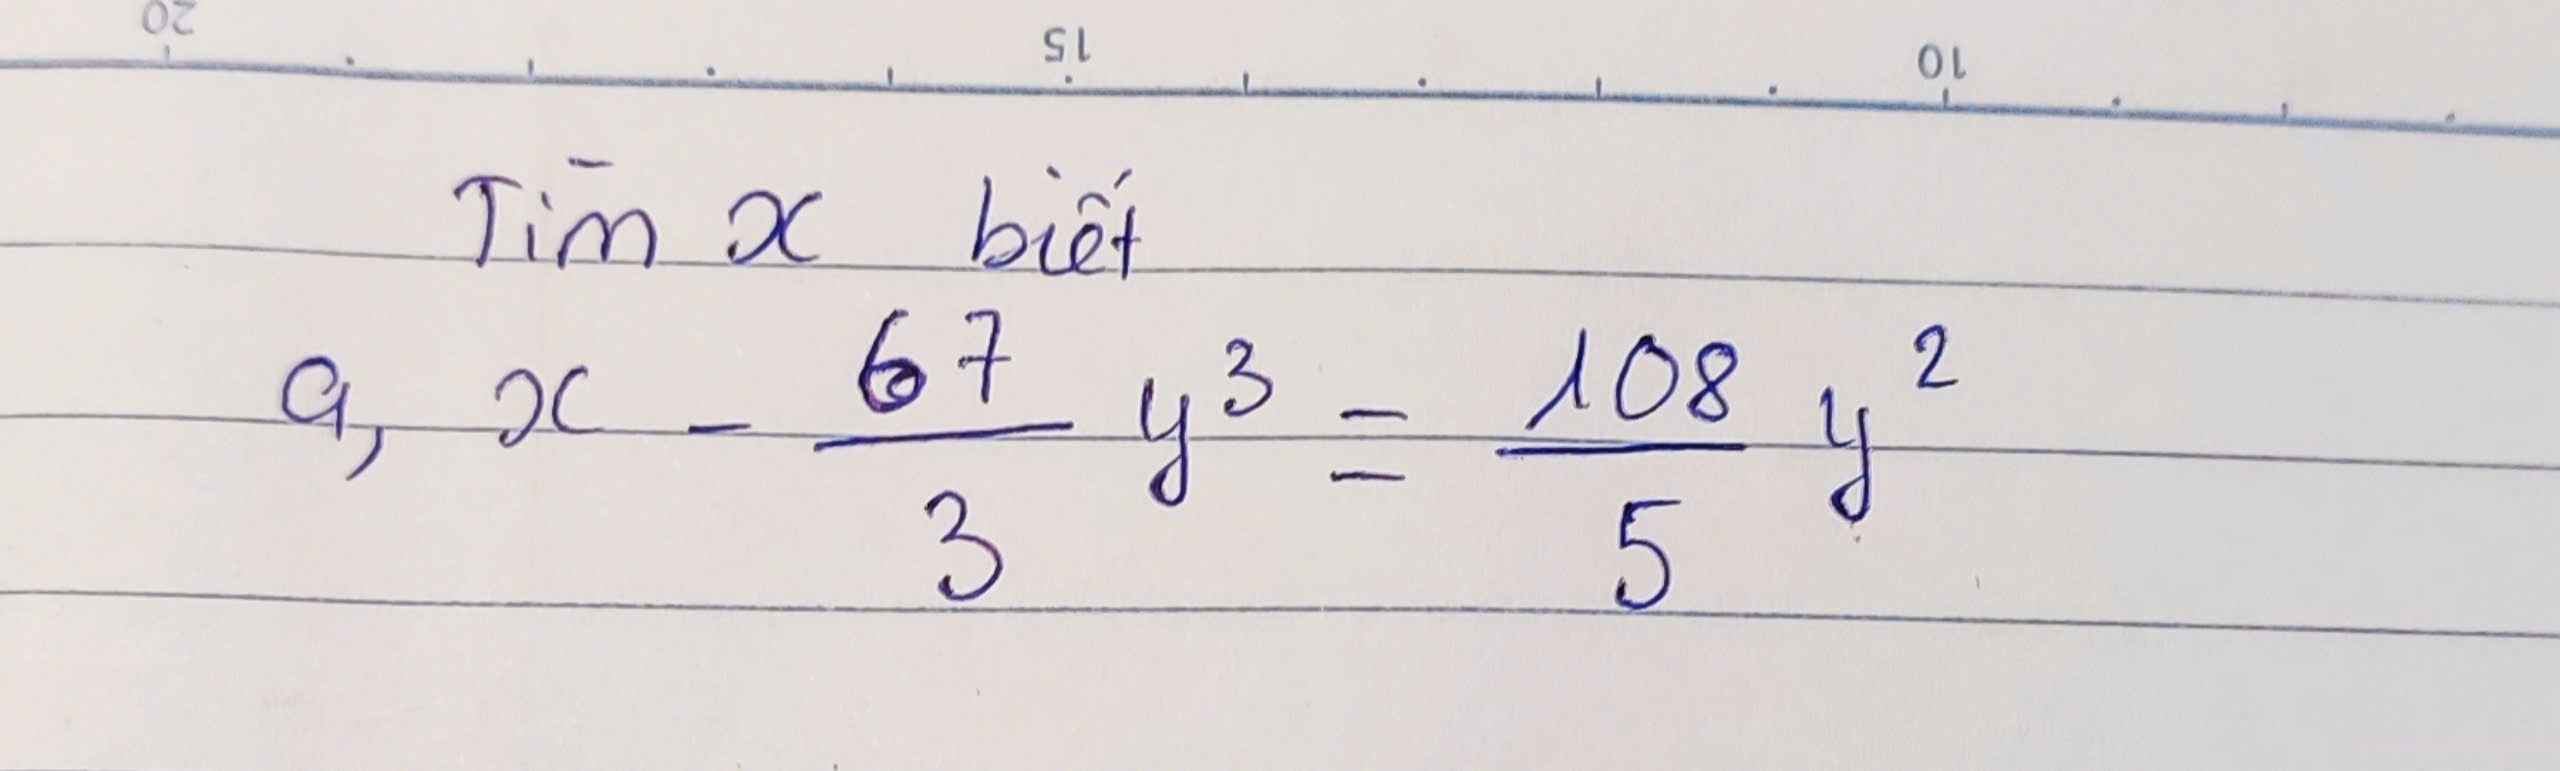 20 15 10
Tìm x biết
a, x - 67/3 y³ = 108/5 y²